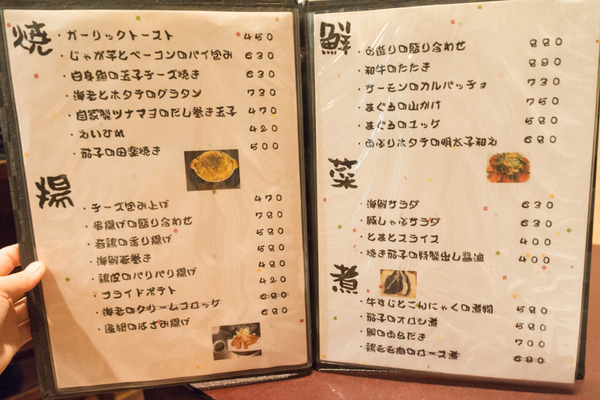 焼
・ガーリックトースト 450
・じゃが芋とベーコンのパイ包み 630
・白身魚の玉子チーズ焼き 630
・海老とホタテのグラタン 730
・自家製ツナマヨのだし巻き玉子 470
・えいひれ 420
・茄子の田楽焼き 500
揚
・チーズ包み上げ 470
・串揚げの盛り合わせ 780
・若鶏の香り揚げ 580
・海鮮春巻き 480
・鶏皮のパリパリ揚げ 420
・フライドポテト 480
・海老のクリームコロッケ 680
・蓮根のはさみ揚げ 680
鮮
・お造りの盛り合わせ 880
・和牛のたたき 890
・サーモンのカルパッチョ 730
・まぐろの山かけ 750
・まぐろのユッケ 580
・あぶりホタテの明太子和え 680
菜
・海鮮サラダ 630
・豚しゃぶサラダ 630
・とまとスライス 400
・焼き茄子の特製出し醤油 400
煮
・牛すじとこんにゃくの煮物 580
・茄子のオロシ煮 580
・鯛のあらだき 700
・鶏もも肉のロース煮 680